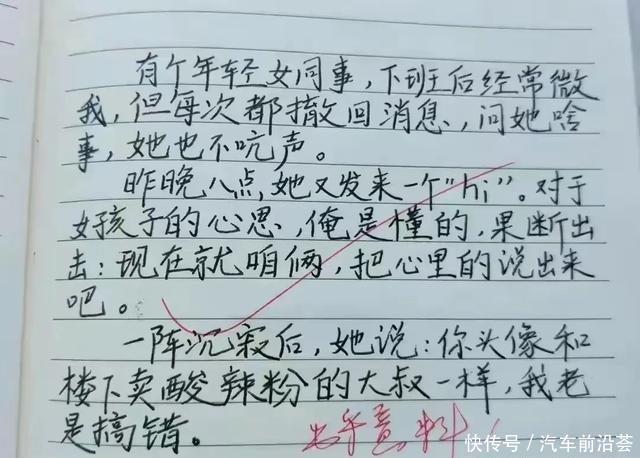 有个年轻女同事,下班后经常微
我,但每次都撤回消息,问她啥
事,她也不吭声。
昨晚八点,她又发来一个"hi"。对于
女孩子的心思,俺是懂的,果断出
击:现在就咱俩,把心里的说出来
吧。
一阵沉寂后,她说:你头像和
楼下卖酸辣粉的大叔一样,我老
是搞错。
出乎意料!
快传号/汽车前沿荟